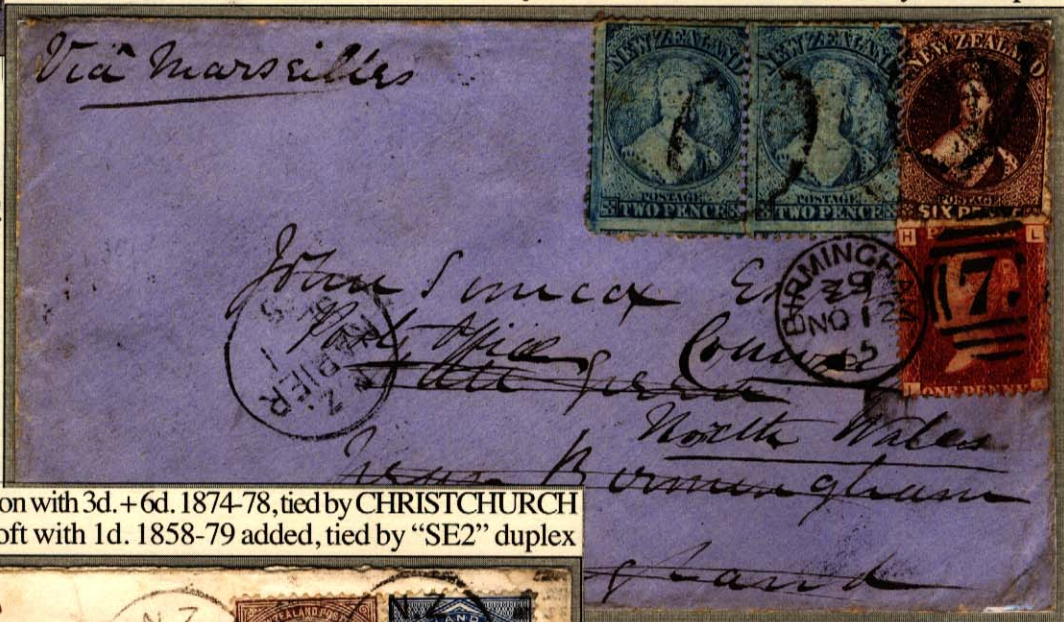 Via Marseilles
NEW ZEALAND
POSTAGE
TWO PENCE
NEW ZEALAND
POSTAGE
TWO PENCE
NEW ZEALAND
POSTAGE
SIX PENCE
H L
L H
ONE PENNY
7.
BIRMINGHAM
NO 1
65
N.Z
NAPIER
John Simcox Esq
Post Office Conway
North Wales
near Birmingham
England
on with 3d.+6d. 1874-78, tied by CHRISTCHURCH
oft with 1d. 1858-79 added, tied by “SE2” duplex
N.Z